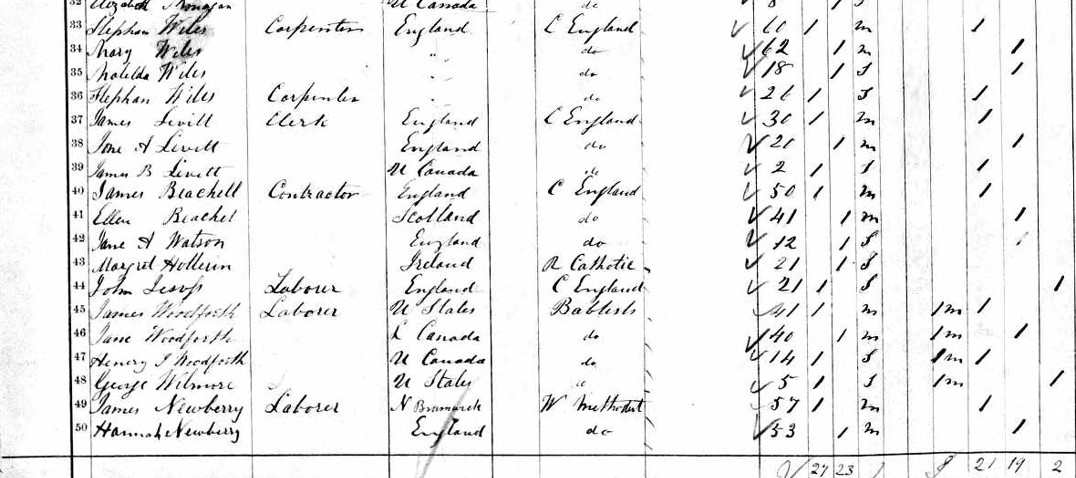 32 U Canada do 8 1 S
33 Stephan Wiles Carpenter England C England 60 1 m 1
34 Mary Wiles " do 62 1 m 1
35 Matelda Wiles " do 18 1 S 1
36 Stephan Wiles Carpenter " do 26 1 S 1
37 James Levitt Clerk England C England 30 1 m 1
38 Jane A Levitt England do 21 1 m 1
39 James B Levitt U Canada do 2 1 S 1
40 James Brachell Contractor England C England 50 1 m 1
41 Ellen Brachel Scotland do 41 1 m 1
42 Jane A Watson England do 12 1 S 1
43 Margret Hollerin Ireland R Catholic 21 1 S
44 John Laborer England C England 21 1 S 1
45 James Woodforth Laborer U States Babtists 41 1 m 1m 1
46 Jane Woodforth L Canada do 40 1 m 1m 1
47 Henery Woodforth U Canada do 14 1 S 1m 1
48 George Wilmore U States do 5 1 S 1m 1
49 James Newberry Laborer N Brunswick W Methodist 57 1 m 1
50 Hannah Newberry England do 53 1 m 1
27 23 1 8 21 19 2